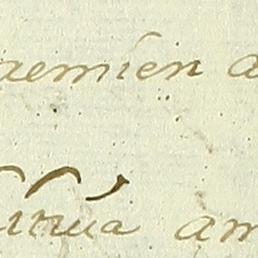 aemien a
tinua am